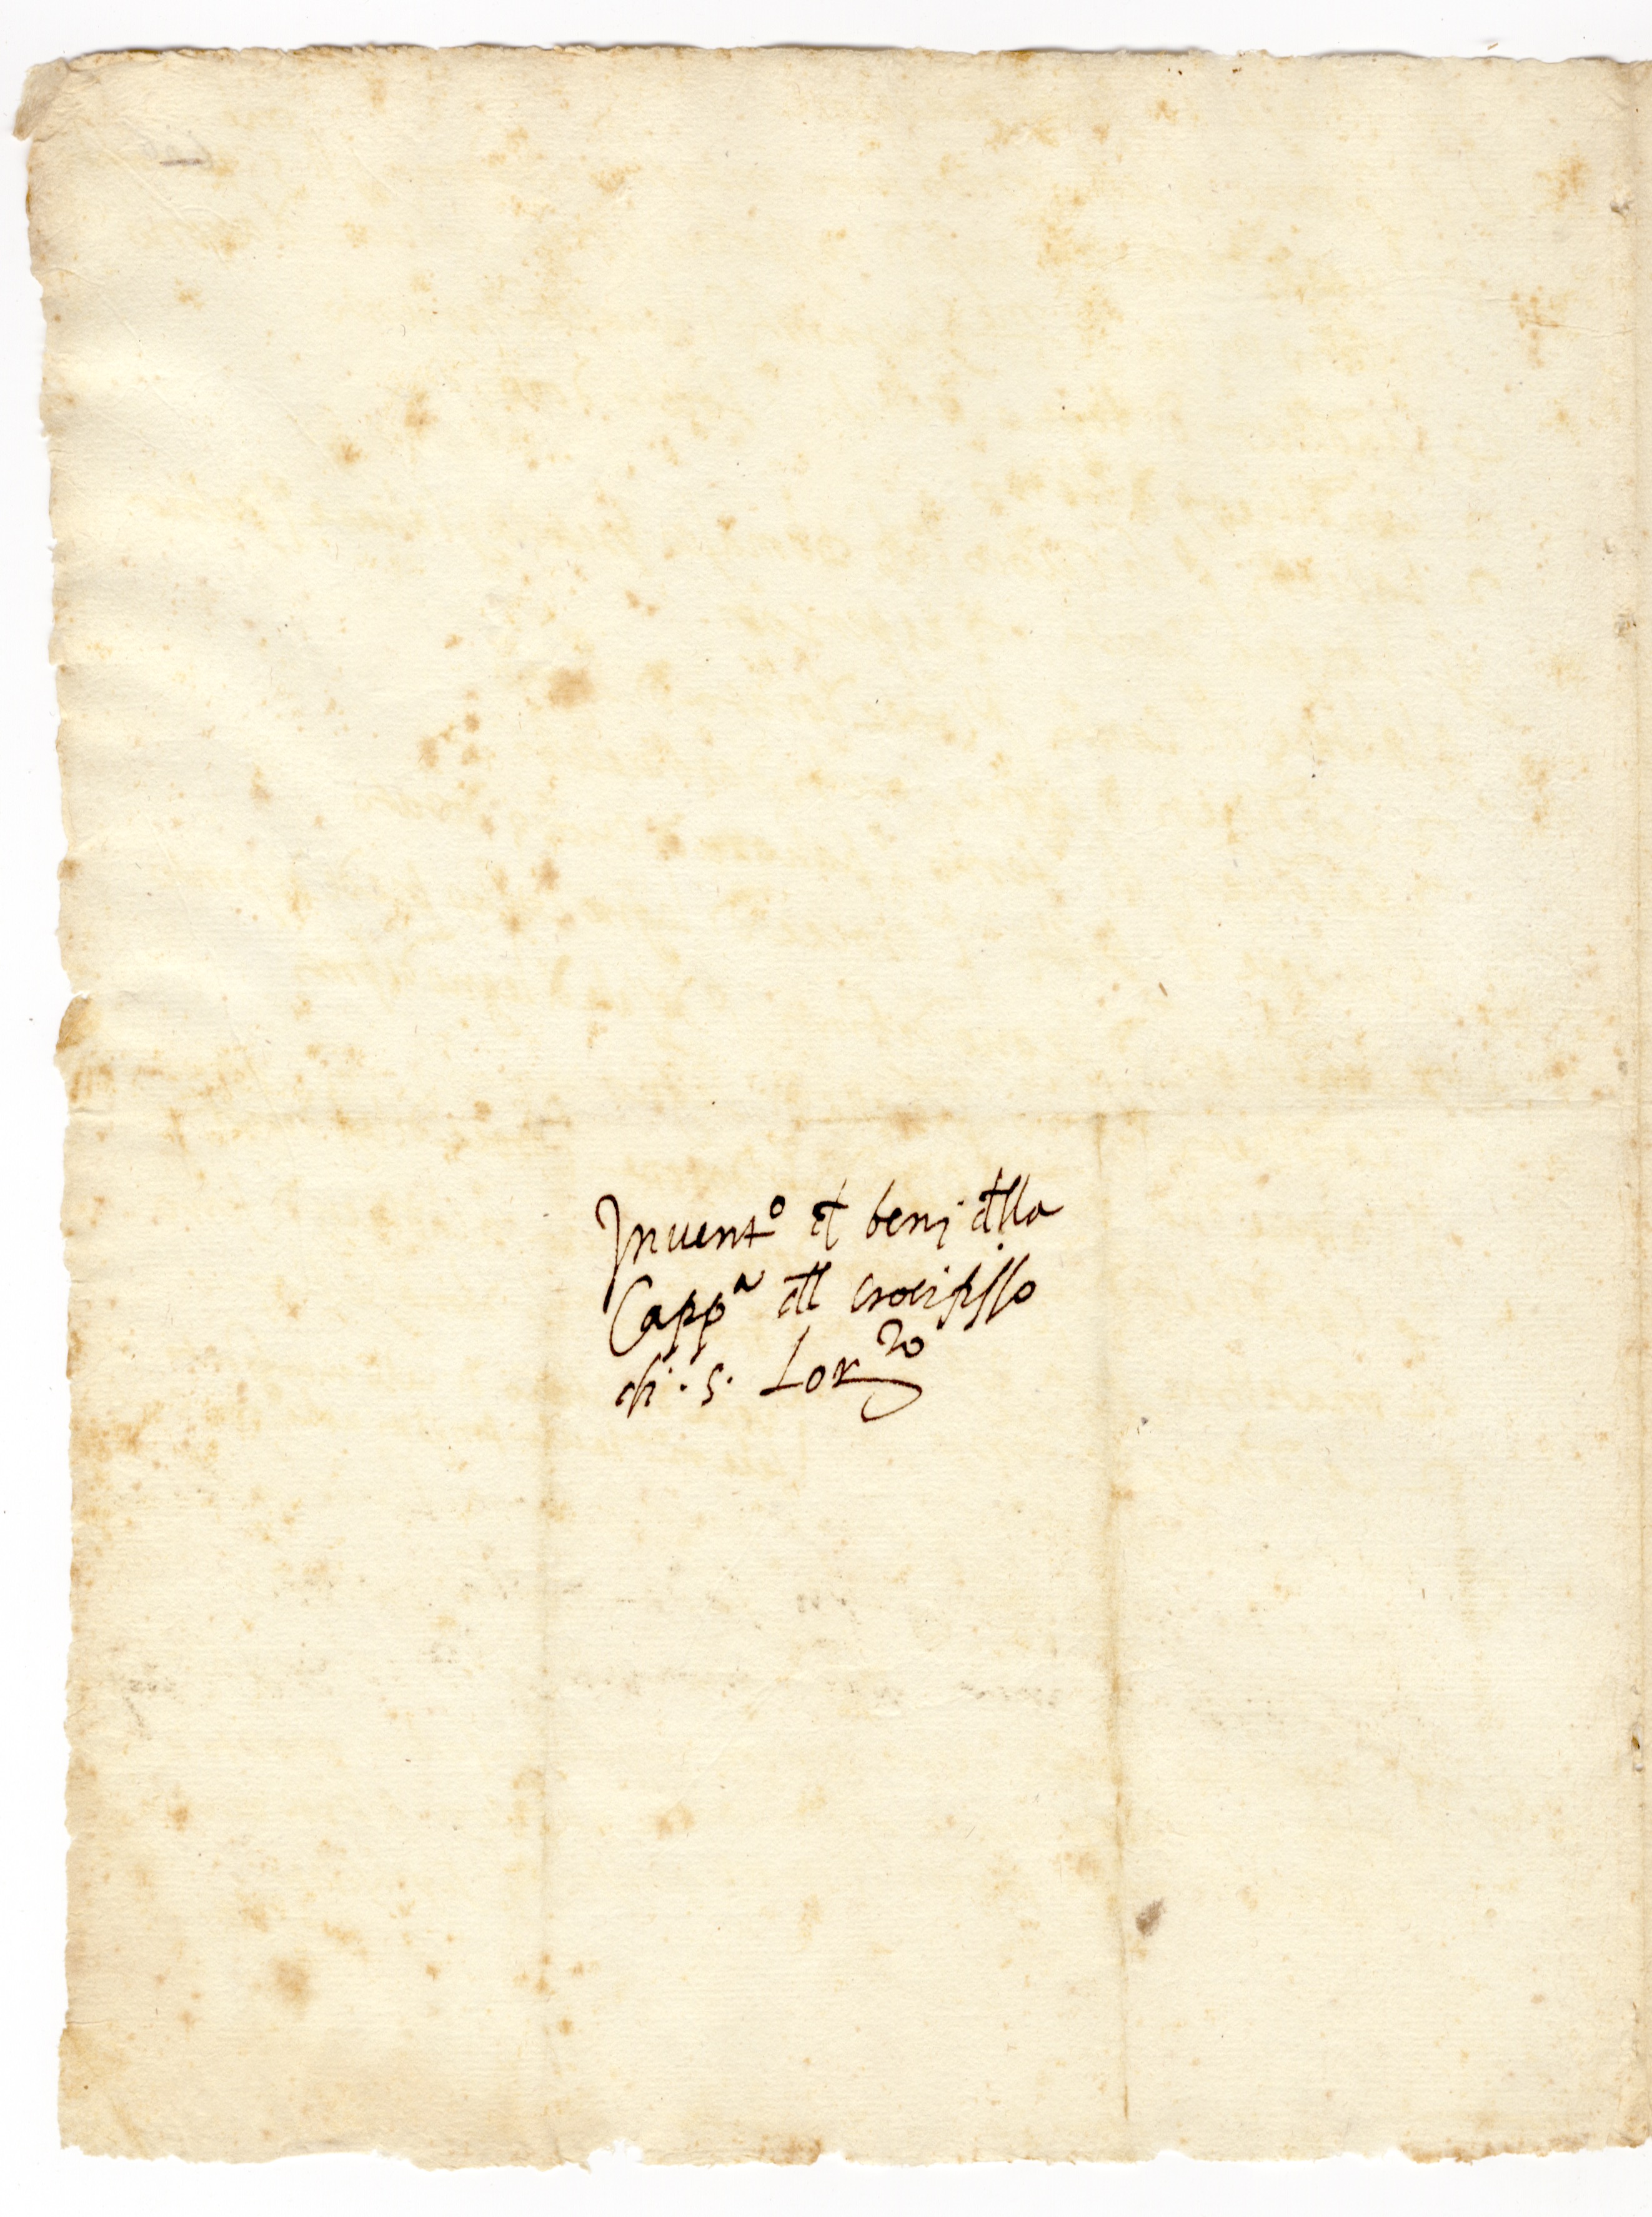 Inuent.º d beni dlla
Cappª dl crocifisso
di · s · Lorᶻᵒ